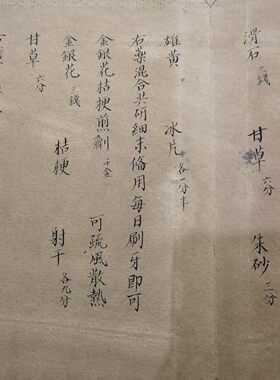 滑石 三錢 甘草 六分 朱砂 二分
雄黃 冰片 各一分半
右藥混合共研細末備用每日刷牙即可
金銀花桔梗煎劑 千金 可疏風散熱
金銀花 三錢 桔梗 射干 各九分
甘草 六分